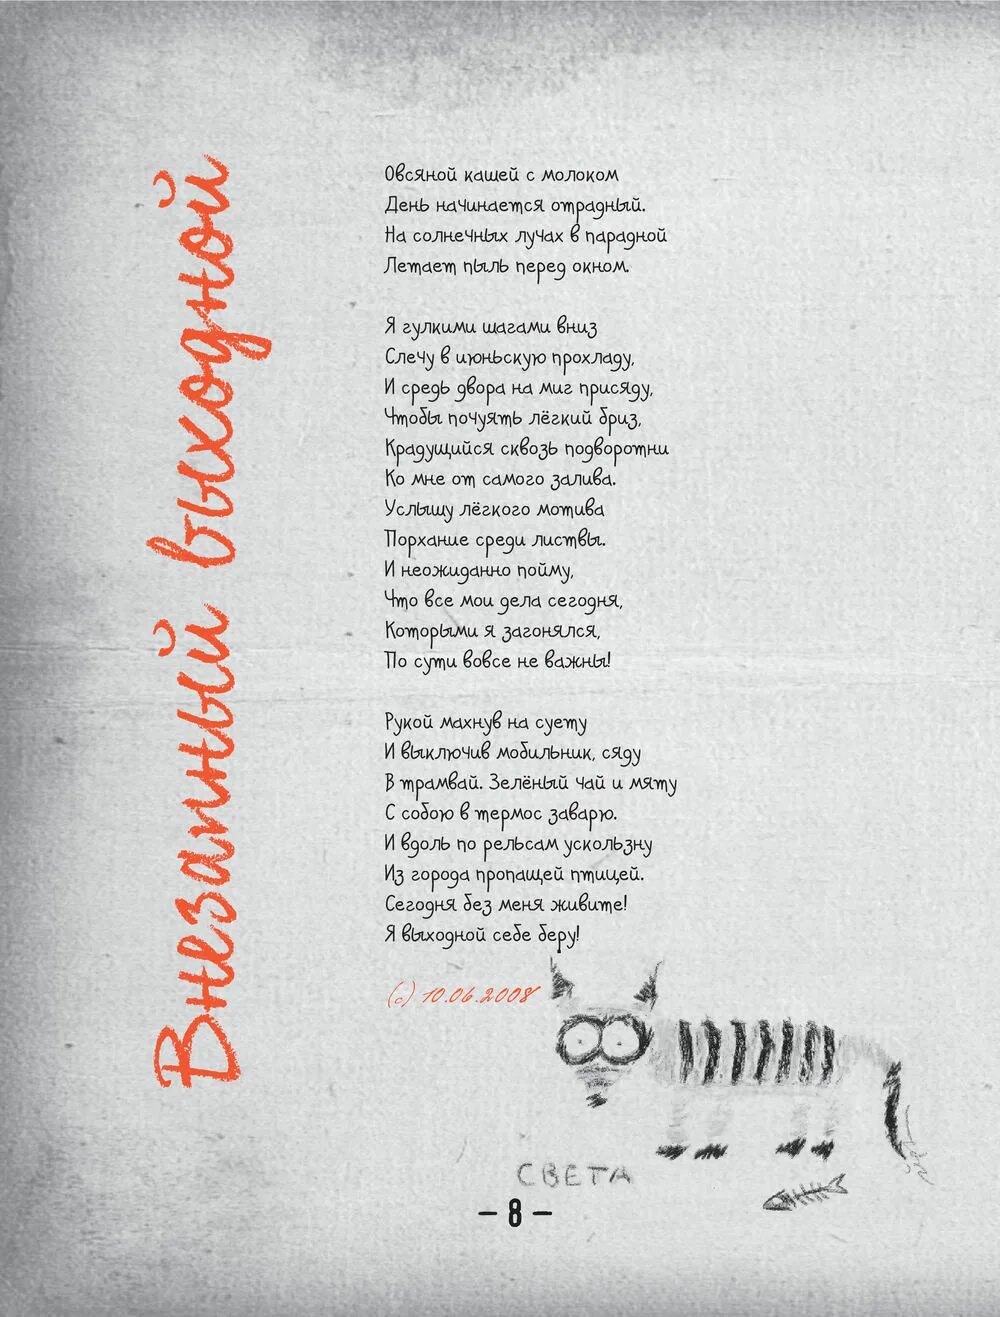 Внезапный выходной
Овсяной кашей с молоком
День начинается отрадный.
На солнечных лучах в парадной
Летает пыль перед окном.
Я гулкими шагами вниз
Слечу в июньскую прохладу,
И средь двора на миг присяду,
Чтобы почуять лёгкий бриз,
Крадущийся сквозь подворотни
Ко мне от самого залива.
Услышу лёгкого мотива
Порхание среди листвы.
И неожиданно пойму,
Что все мои дела сегодня,
Которыми я загонялся,
По сути вовсе не важны!
Рукой махнув на суету
И выключив мобильник, сяду
В трамвай. Зелёный чай и мяту
С собою в термос заварю.
И вдоль по рельсам ускользну
Из города пропащей птицей.
Сегодня без меня живите!
Я выходной себе беру!
(с) 10.06.2008
СВЕТА
– 8 –